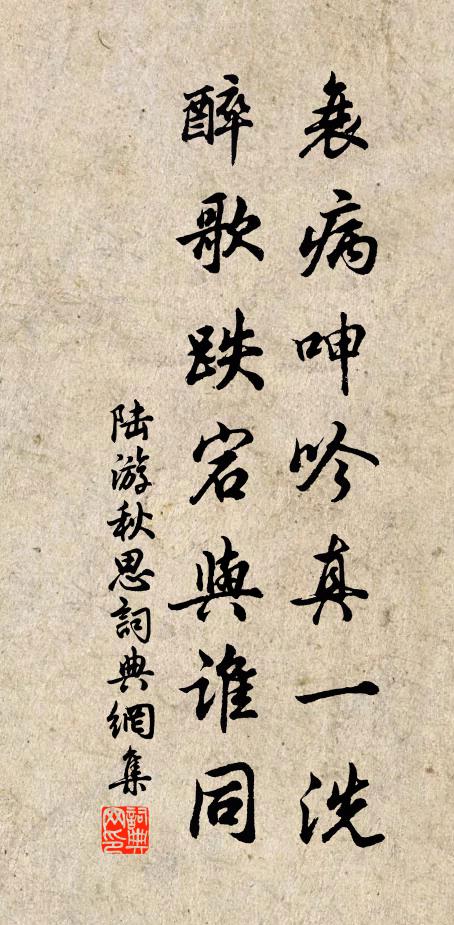 衰病呻吟真一洗
醉歌跌宕與誰同
陆游秋思詞典網集
詞典网印